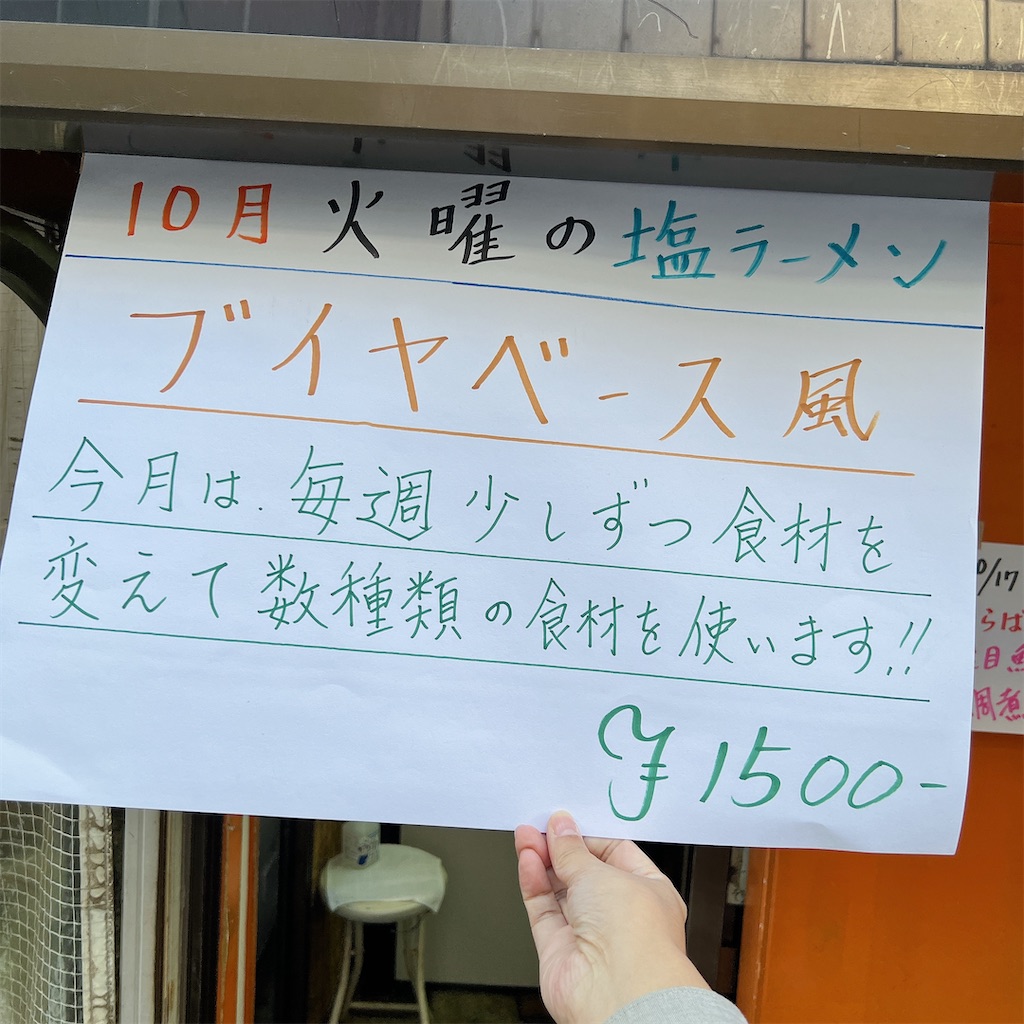 10月 火曜の塩ラーメン
ブイヤベース風
今月は、毎週少しずつ食材を
変えて数種類の食材を使います!!
¥1500-
0/17
らば
目魚
周煮